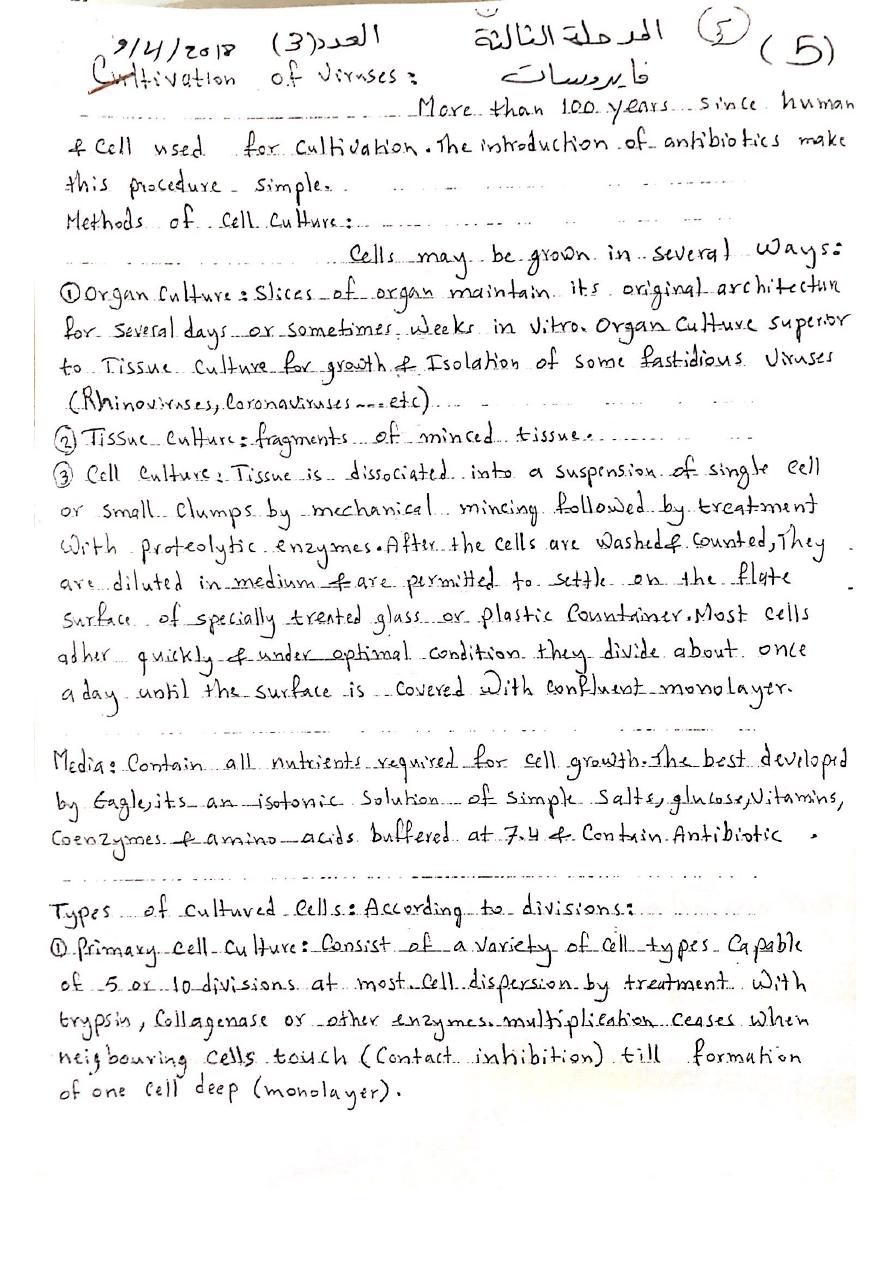 9/4/2018 العدد(3) المرحلة الثالثة 5 (5)
Cultivation of Viruses: فايروسات
More than 100 years since human
& Cell used for Cultivation. The introduction of antibiotics make
this procedure simple.
Methods of Cell Culture:
Cells may be grown in several ways:
① Organ Culture: Slices of organ maintain its original architectur
for several days or sometimes weeks in vitro. Organ Culture superior
to Tissue Culture for growth & Isolation of some fastidious Viruses
(Rhinoviruses, Coronaviruses ---- etc)
② Tissue Culture: fragments of minced tissue.
③ Cell Culture: Tissue is dissociated into a suspension of single cell
or small Clumps by mechanical mincing followed by treatment
With proteolytic enzymes. After the cells are washed & Counted, They
are diluted in medium & are permitted to settle on the flate
surface of specially treated glass or plastic Countainer. Most cells
adher quickly & under optimal condition they divide about once
a day until the surface is covered With Confluent monolayer.
Media: Contain all nutrients required for cell growth. The best developed
by Eagle, its an isotonic Solution of Simple Salts, glucose, Vitamins,
Coenzymes & amino acids buffered at 7.4 & Contain Antibiotic.
Types of Cultured Cells: According to divisions:
① Primary Cell Culture: Consist of a variety of Cell types Capable
of 5 or 10 divisions at most. Cell dispersion by treatment With
trypsin, Collagenase or other enzymes. multiplication Ceases When
neigbouring Cells touch (Contact inhibition) till formation
of one Cell deep (monolayer).